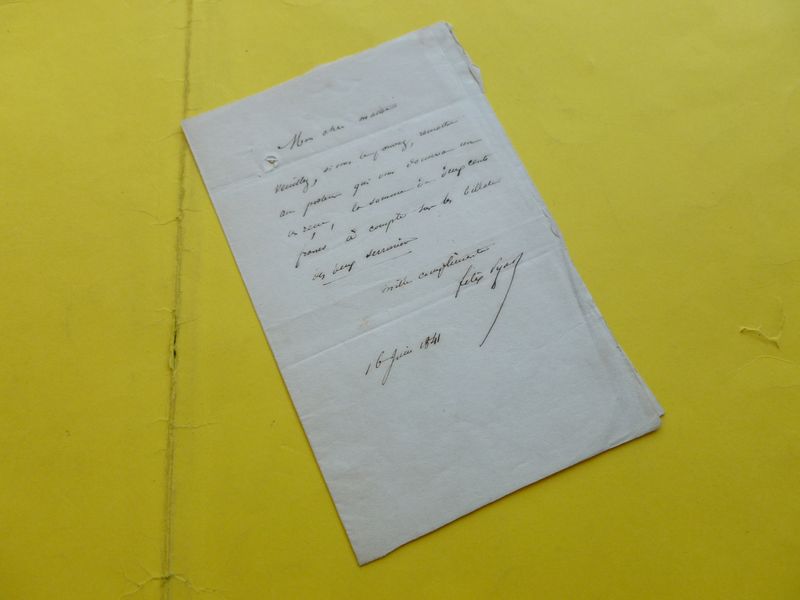 Mon cher monsieur
Veuillez, si vous le pouvez, remettre
au porteur qui vous donnera un
reçu, la somme de deux cents
francs à compte sur les billets
des deux serruriers
mille compliments
félix Pyat
16 Juin 1841